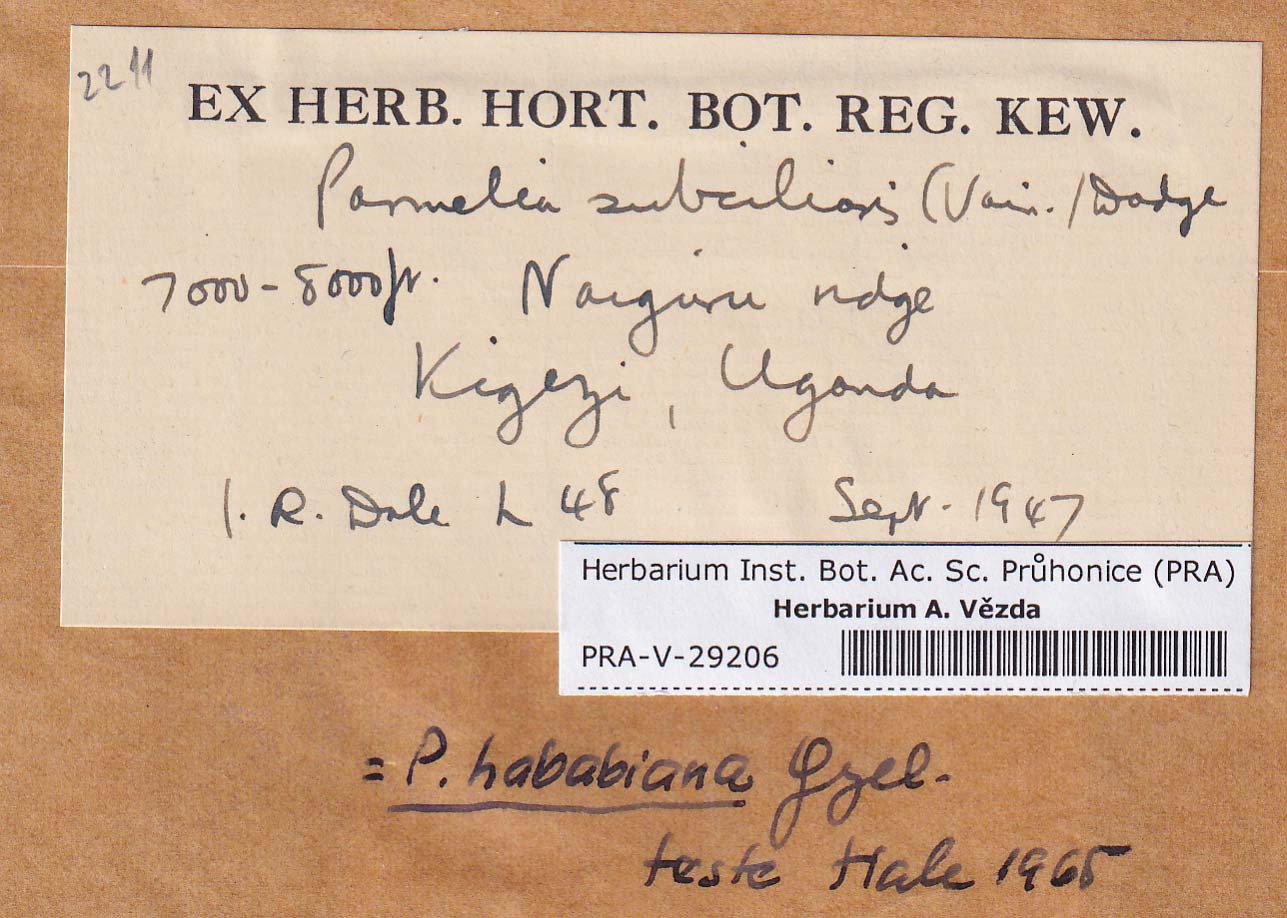 2211
EX HERB. HORT. BOT. REG. KEW.
Parmelia subciliaris (Vain.) Dodge
7000-8000ft. Naiguru ridge
Kigezi, Uganda
I. R. Dale L 48 Sept. 1947
Herbarium Inst. Bot. Ac. Sc. Průhonice (PRA)
Herbarium A. Vězda
PRA-V-29206
= P. hababiana Gyel.
teste Hale 1965